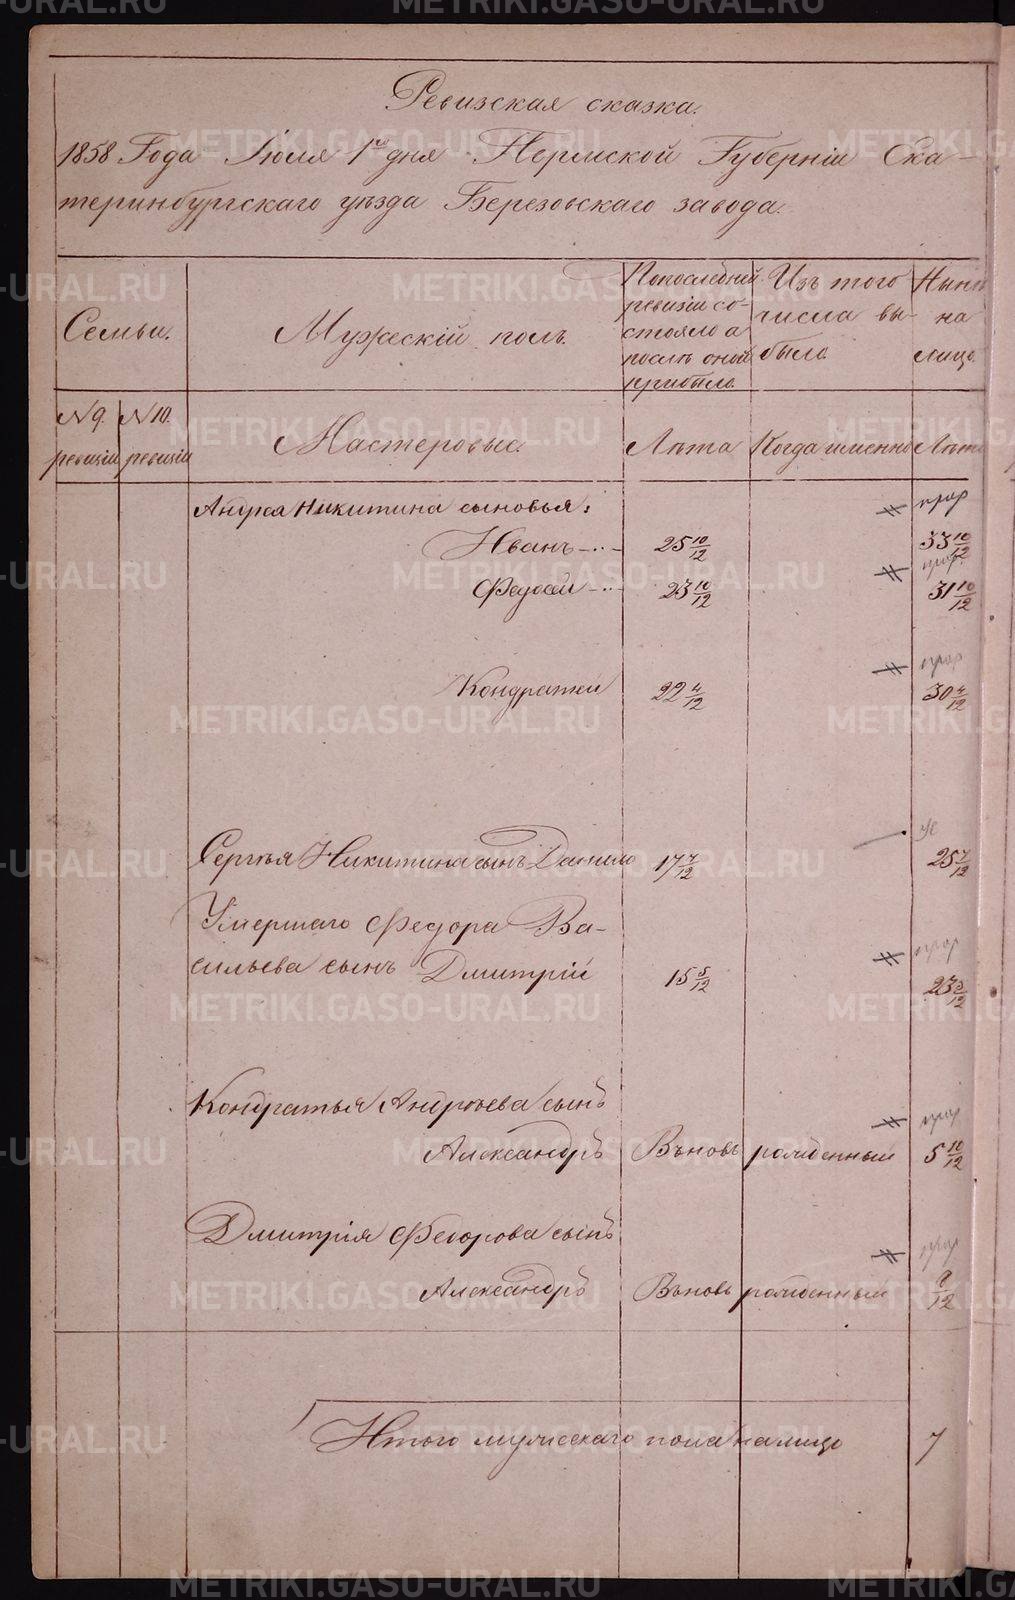 Ревизская сказка.
1858 Года Іюля 1го дня Пермской Губерніи Ека-
теринбургскаго уѣзда Березовскаго завода.
Семьи.
Мужескій полъ.
По последней
ревизіи со-
стояло а
послѣ оной
прибыло.
Изъ того
числа вы-
было.
Нынѣ
на
лицо.
№ 9.
ревизіи
№ 10.
ревизіи
Мастеровые.
Лѣта
Когда именно
Лѣта
Андрея Никитина сыновья:
Иванъ
25 10/12
33 10/12
Федосей
23 10/12
31 10/12
Кондратей
22 4/12
30 4/12
Сергѣя Никитина сынъ Данило
17 7/12
25 7/12
Умершаго Федора Ва-
сильева сынъ Дмитрій
15 5/12
23 5/12
Кондратья Андрѣева сынъ
Александръ
Въновь рожденный
5 10/12
Дмитрія Федорова сынъ
Александръ
Въновь рожденный
9/12
Итого мужескаго пола на лицо
7
METRIKI.GASO-URAL.RU